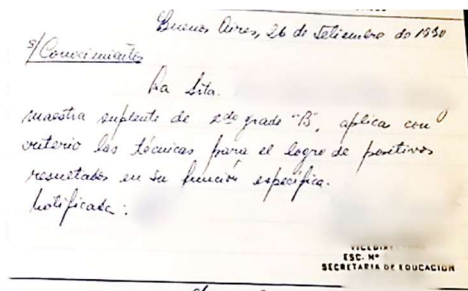 Buenos Aires, 26 de Setiembre de 1990
s/Conocimientos
La Srta.
maestra suplente de 2do grado "B", aplica con
criterio las técnicas para el logro de positivos
resultados en su función específica.
Notificada:
VICEDIRE
ESC. Nº
SECRETARIA DE EDUCACION